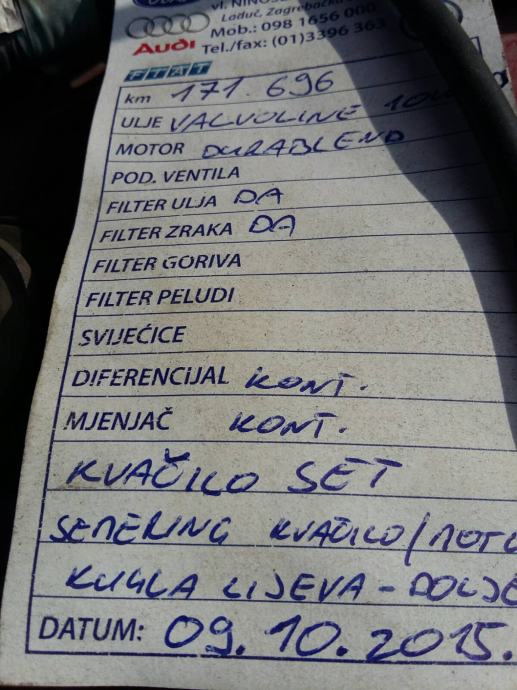 Laduč, Zagrebačka
Mob.: 098 1656 000
Audi Tel./fax: (01)3396 363
FIAT
km 171.696
ULJE VALVOLINE
MOTOR DURABLEND
POD. VENTILA
FILTER ULJA DA
FILTER ZRAKA DA
FILTER GORIVA
FILTER PELUDI
SVIJEĆICE
DIFERENCIJAL KONT.
MJENJAČ KONT.
KVAČILO SET
SEMERING KVAČILO/MOTO
KUGLA LIJEVA - DOLJE
DATUM: 09.10.2015.